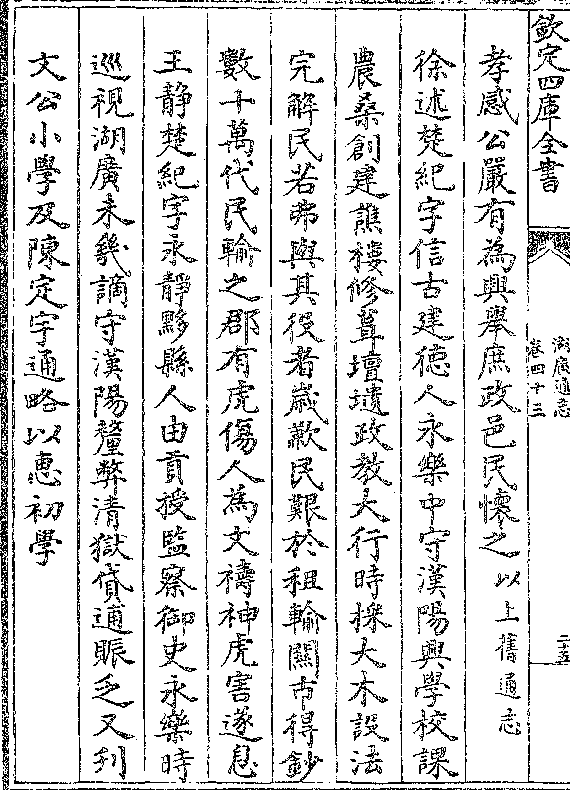 欽定四庫全書
湖廣通志
卷四十三
二十五
孝感公嚴有為興舉庶政邑民懷之以上舊通志
徐述楚紀字信古建德人永樂中守漢陽興學校課
農桑創建譙樓修葺壇壝政教大行時採大木設法
完解民若弗與其役者歲歉民艱於租輸闗市得鈔
數十萬代民輸之郡有虎傷人為文禱神虎害遂息
王静楚紀字永靜黟縣人由貢授監察御史永樂時
巡視湖廣未幾謫守漢陽釐弊清獄貸逋賑乏又刋
文公小學及陳定宇通略以惠初學